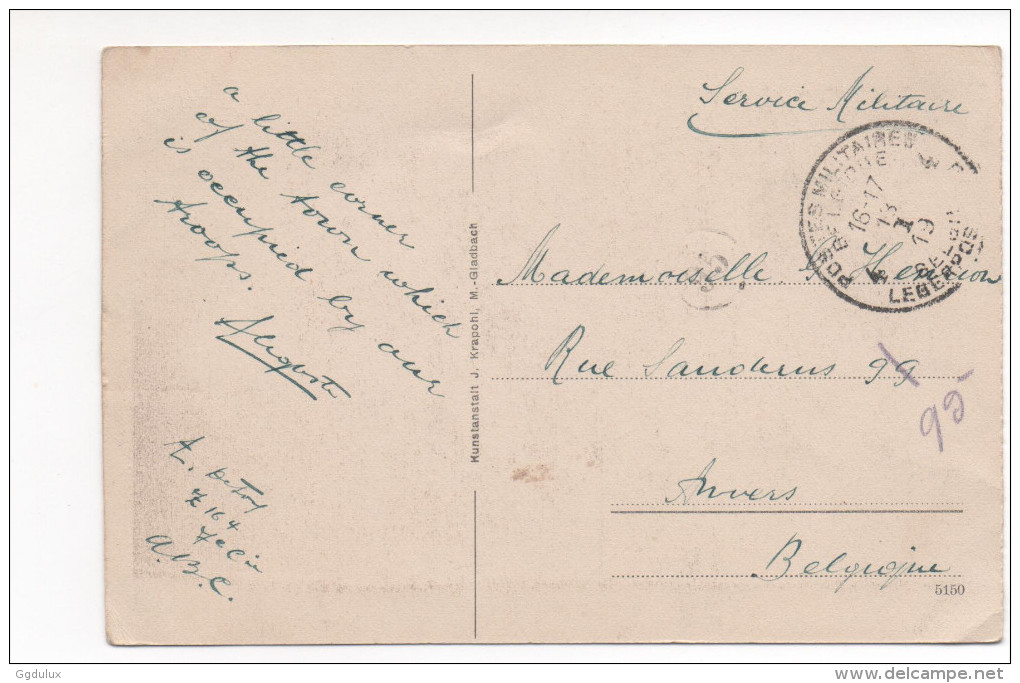 a little corner
of the town which
is occupied by our
troops.
Auguste
A. Detroy
Z 164
A.B.C.
Kunstanstalt J. Krapohl, M.-Gladbach
Service Militaire
POSTES MILITAIRES
BELGIQUE
16-17
13
I
19
BELGI
LEGERPOS
Mademoiselle G. Henrion
Rue Sanderus 99
95
Anvers
Belgique
5150
Ggdulux
delcampe.net